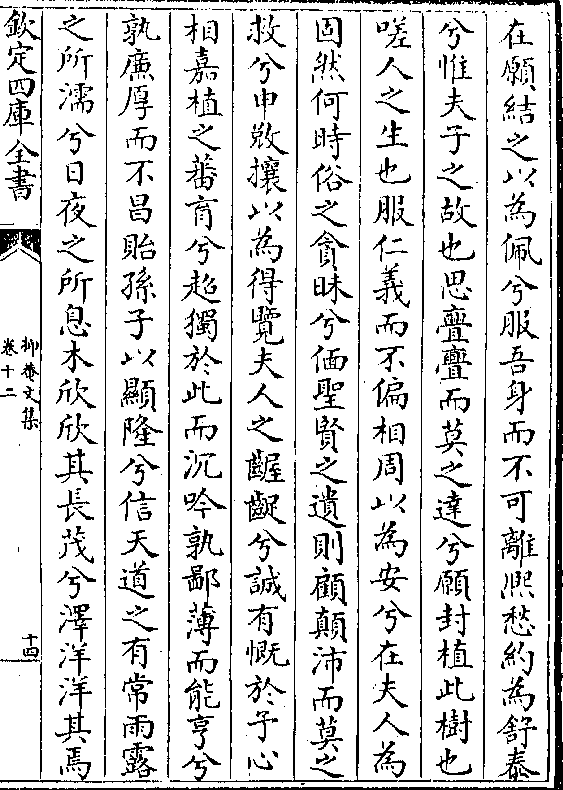 在願結之以為佩兮服吾身而不可離熈愁約為舒泰
兮惟夫子之故也思亹亹而莫之達兮願封植此樹也
嗟人之生也服仁義而不偏相周以為安兮在夫人為
固然何時俗之貪昧兮偭聖賢之遺則顧顛沛而莫之
救兮申敚攘以為得覽夫人之齷齪兮誠有慨於予心
相嘉植之蕃育兮超獨於此而沉吟孰鄙薄而能亨兮
孰㢘厚而不昌貽孫子以顯隆兮信天道之有常雨露
之所濡兮日夜之所息木欣欣其長茂兮澤洋洋其焉
欽定四庫全書
抑菴文集
卷十二
十四